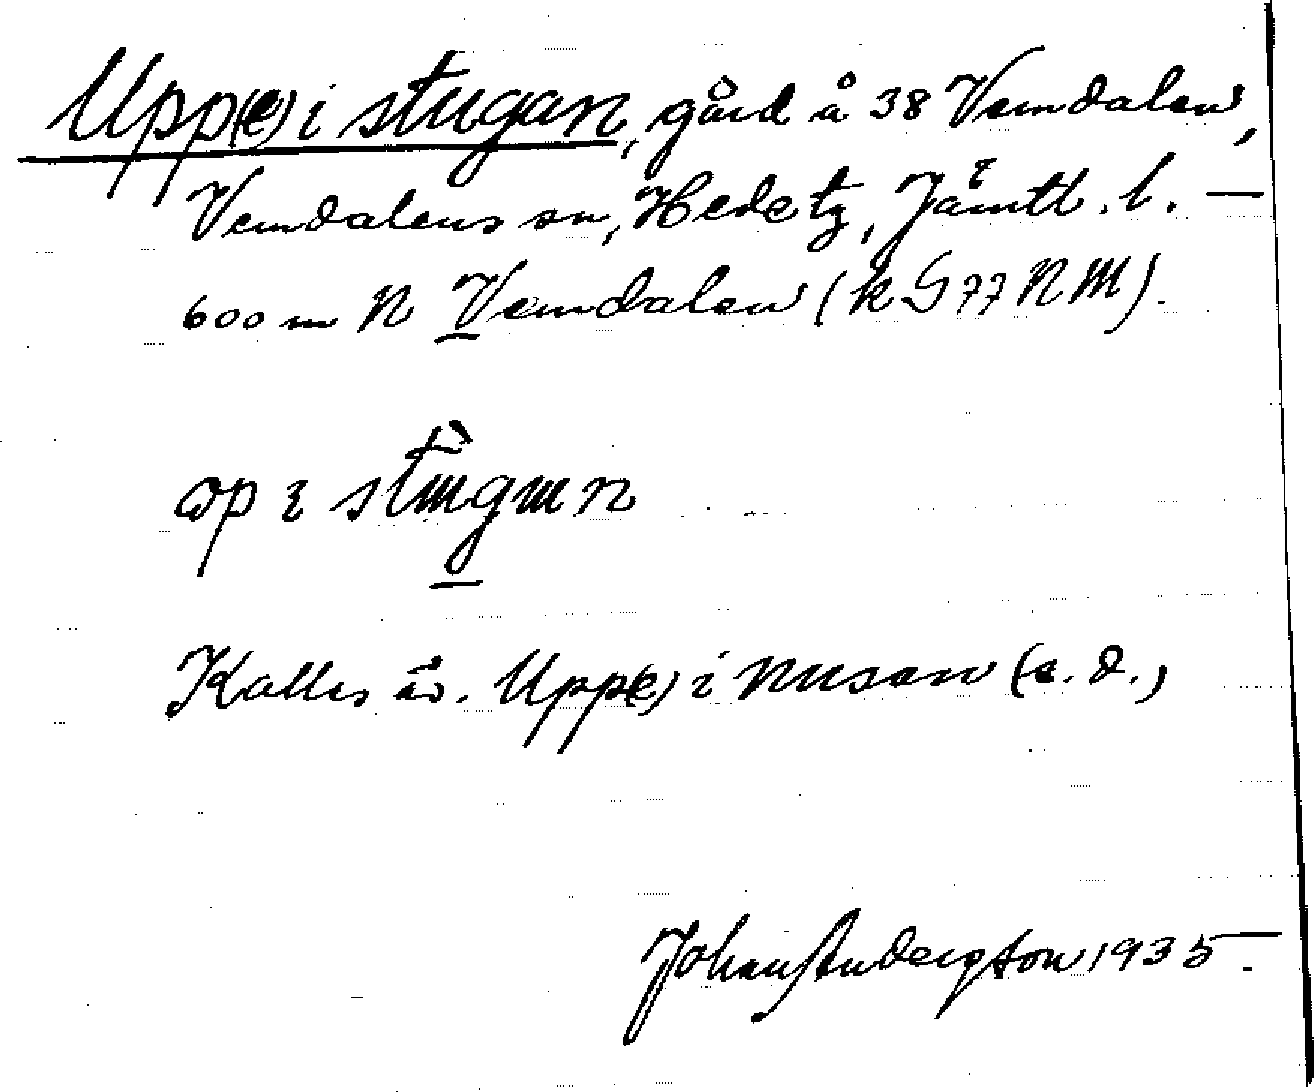 Upp(e) i stugan, gård å 38 Vemdalen,
Vemdalens sn, Hede tg, Jämtl. l. —
600 m N Vemdalen (k G 77 NM).
op i stugun
Kallas äv. Upp(e) i nusan (s. d.)
Johan Anderzson 1935.